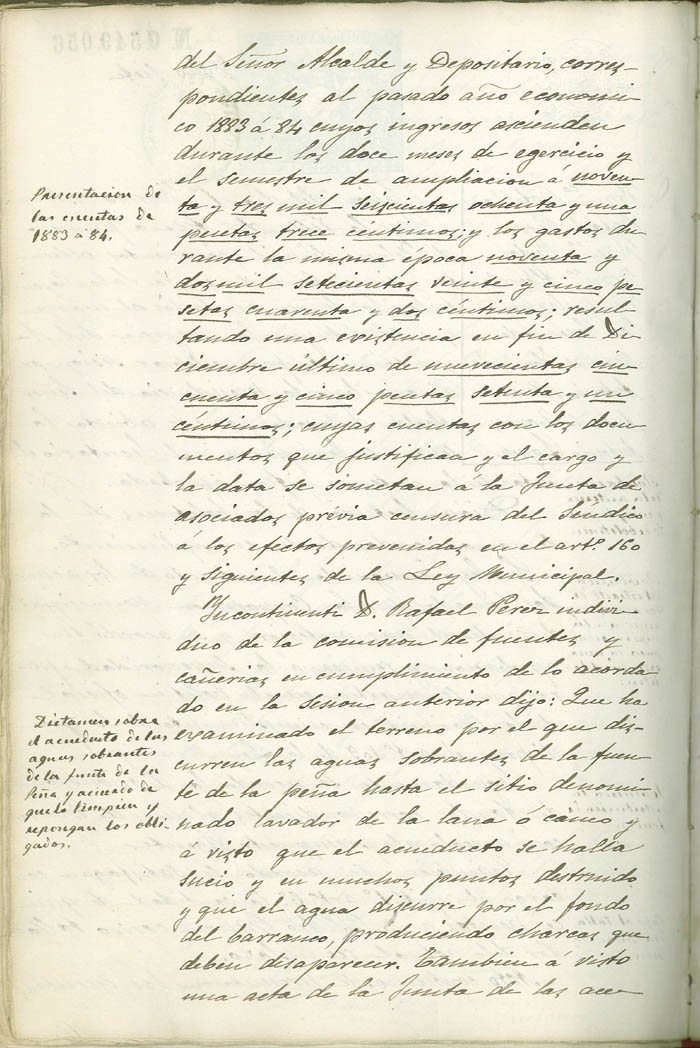 del Señor Alcalde y Depositario, corres-
pondientes al pasado año economi
co 1883 á 84 cuyos ingresos ascienden
durante los doce meses de egercicio y
el semestre de ampliacion á noven-
ta y tres mil seiscientas ochenta y una
pesetas trece centimos; y los gastos du-
rante la misma época noventa y
dos mil setecientas veinte y cinco pe-
setas cuarenta y dos céntimos; resul
tando una existencia en fin de Di
ciembre último de nuevecientas cin
cuenta y cinco pesetas setenta y un
céntimos; cuyas cuentas con los docu-
mentos que justifican y el cargo y
la data se sometan á la Junta de
asociados prévia censura del Sindico
á los efectos prevenidos en el artº. 160
y siguientes de la Ley Municipal.
Presentacion de
las cuentas de
1883 á 84.
Incontinenti D. Rafael Perez indivi
duo de la comision de fuentes y
cañerias en cumplimiento de lo acorda
do en la sesion anterior dijo: Que ha
examinado el terreno por el que dis-
curren las aguas sobrantes de la fuen
te de la peña hasta el sitio denomi
nado lavador de la lana ó canco y
á visto que el acueducto se halla
sucio y en muchos puntos destruido
y que el agua discurre por el fondo
del barranco, produciendo charcas que
deben disaparecer. Tambien á visto
una acta de la Junta de las ace
Dictamen sobre
el acueducto de las
aguas sobrantes
de la fuente de la
Peña y acuerdo de
que lo limpien y
repongan los obli-
gados.
Nº 0.549.056